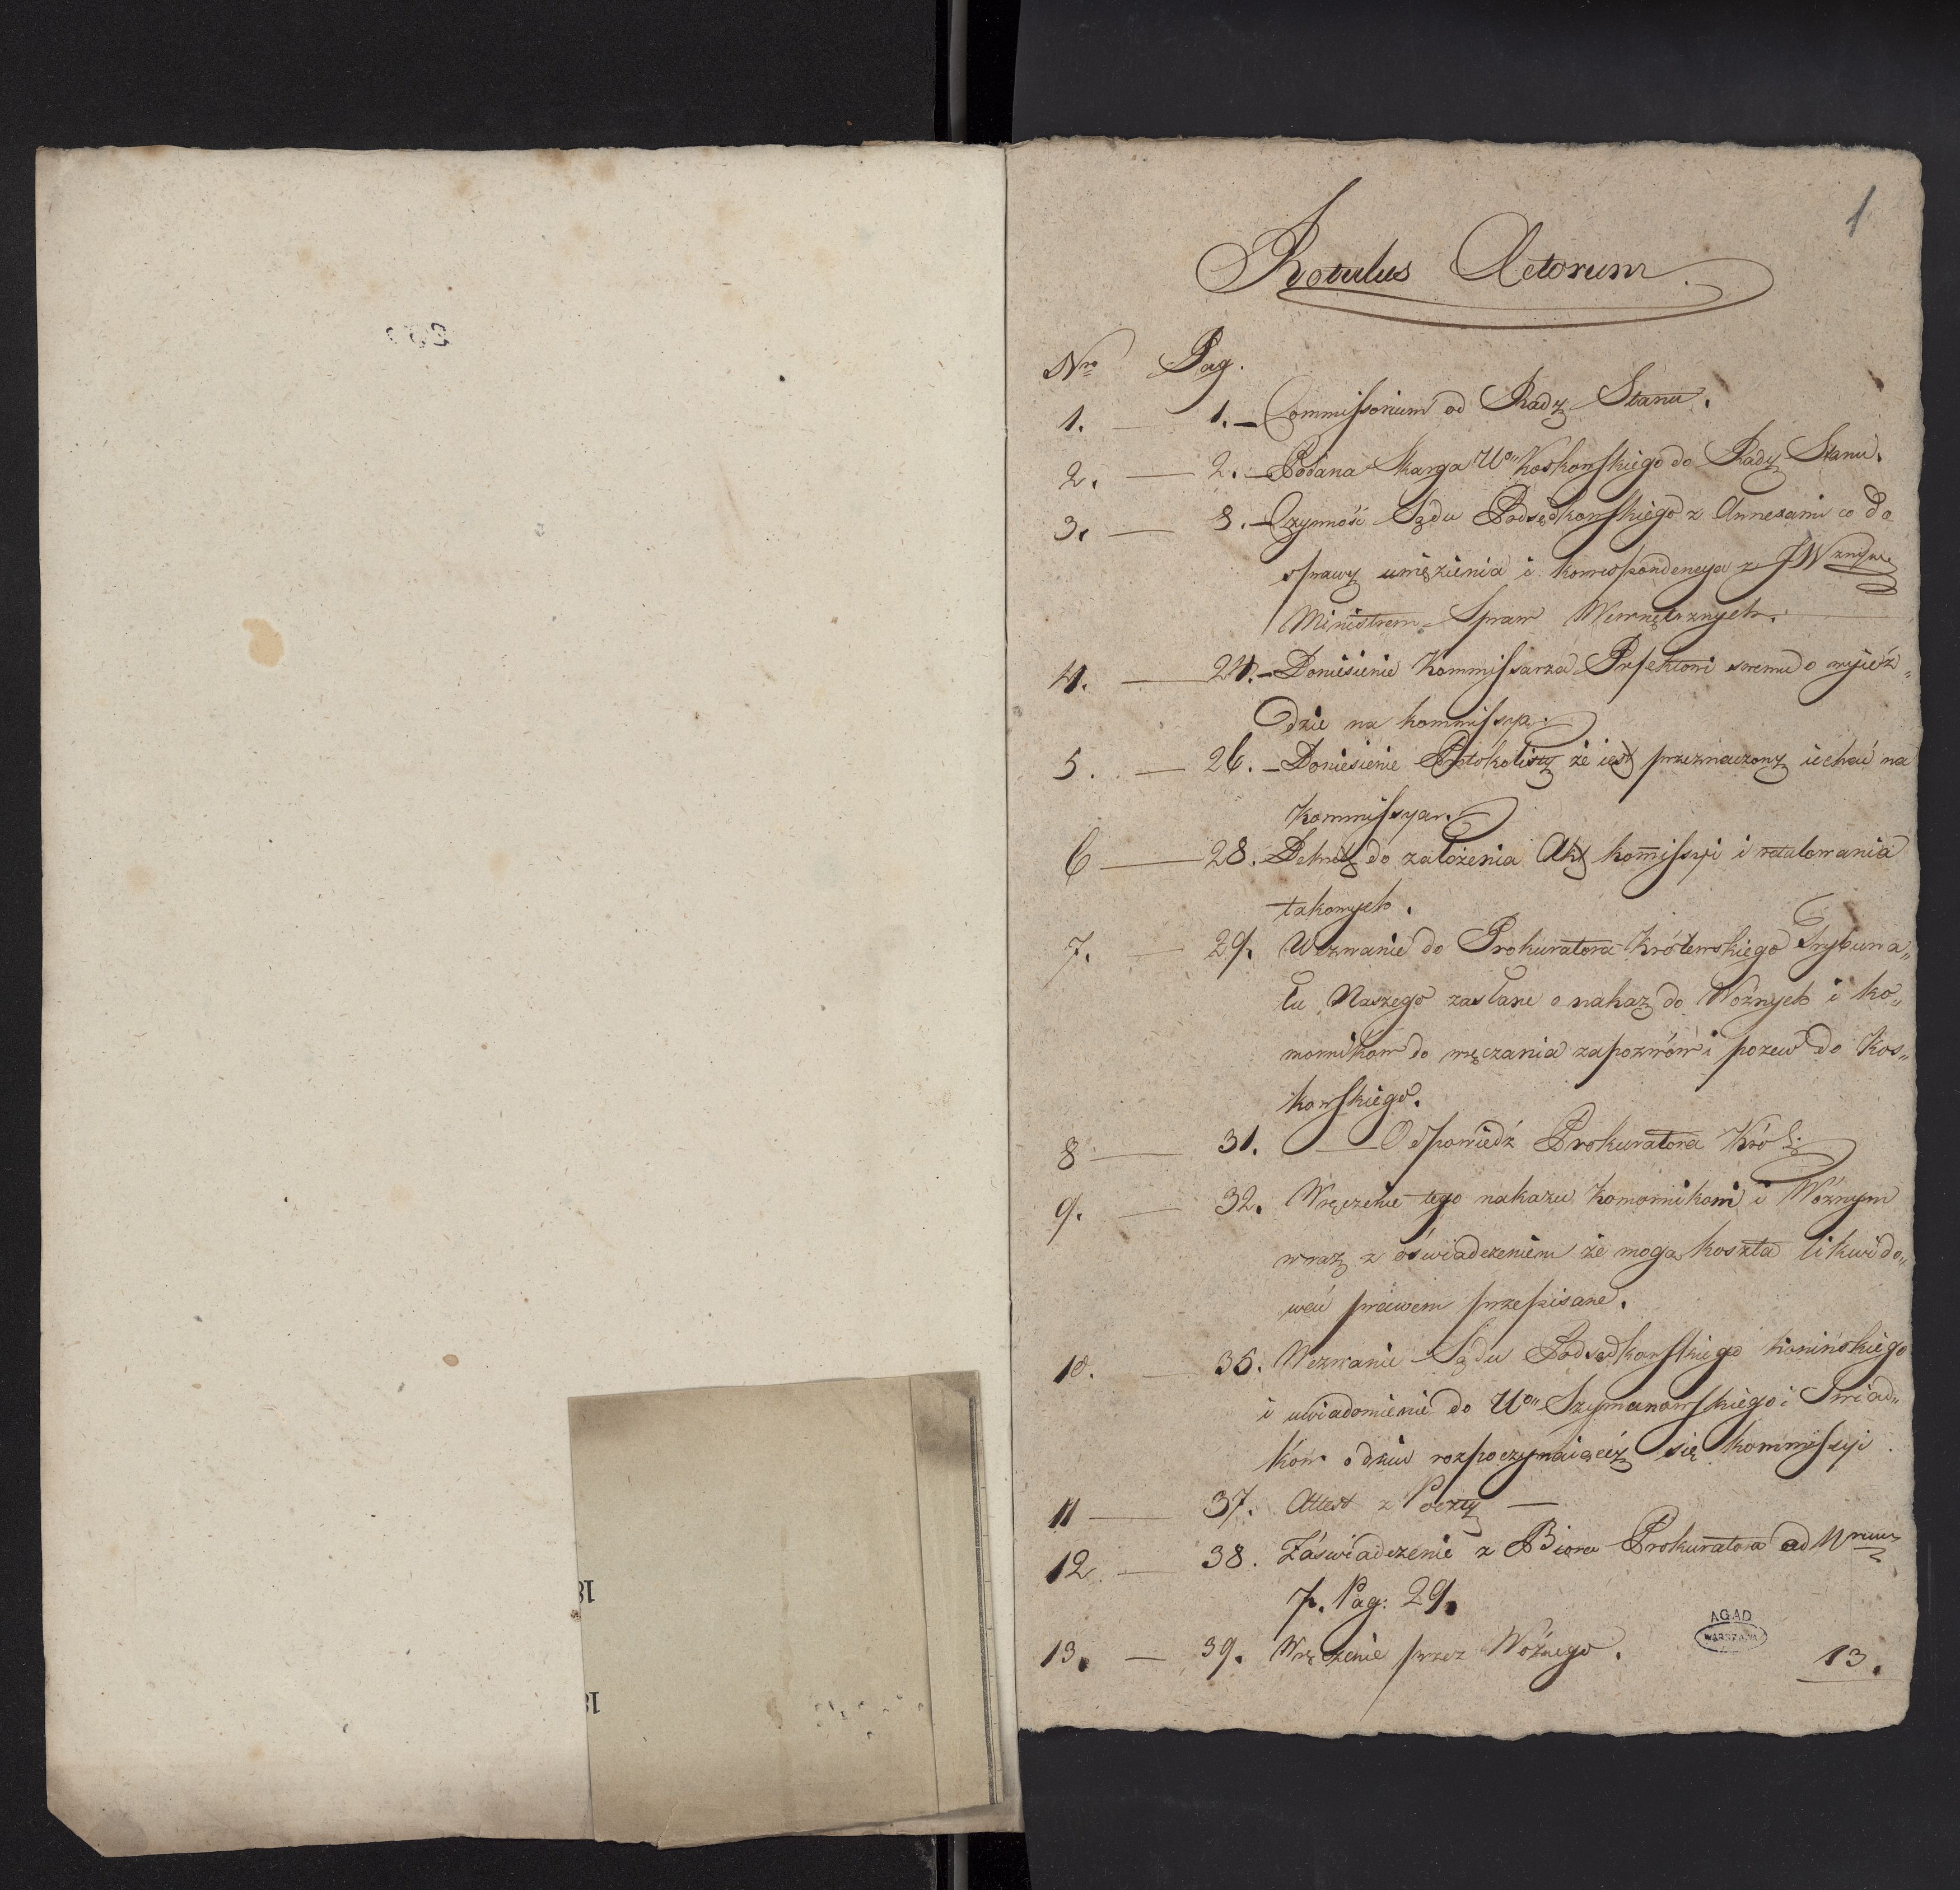 1
Rotulus Actorum.
Nro Pag.
1. — 1. — Commissorium od Rady Stanu.
2. — 2. — Podana Skarga Uo Koskowskiego do Rady Stanu.
3. — 8. — Czynność Sądu Podsędkowskiego z Annexami co do
sprawy uwięzienia i korrespondencya z JW
Ministrem Spraw Wewnętrznych.
4. — 24. — Doniesienie Kommissarza Prefektowi swemu o wyieź„
dzie na kommissyą.
5. — 26. — Doniesienie Protokolisty że iest przeznaczony iechać na
Kommissyan.
6 — 28. Dekret do założenia Akt kommissyi i rotulowania
takowych.
7. — 29. Wezwanie do Prokuratora Królewskiego Trybuna„
łu Naszego zasłane o nakaz do Woźnych i Ko„
morników do wręczania zapozwów i pozew do Kos„
kowskiego.
8 — 31. — Odpowiedź Prokuratora Król:
9. — 32. Wręczenie tego nakazu Komornikom i Woźnym
wraz z oświadczeniem że mogą koszta likwido„
wać prawem przepisane.
10. — 35. Wezwanie Sądu Podsędkowskiego Konińskiego
i uwiadomienie do Uo Szymanowskiego i Swiad„
ków o dniu rozpoczynaiącéy się kommissyi.
11 — 37. Attest z Poczty —
12 — 38. Zaświadczenie z Biora Prokuratora ad Nrum
7. Pag: 29.
13. — 39. Wręczenie przez Woźnego.
AGAD
WARSZAWA
13.
18
18